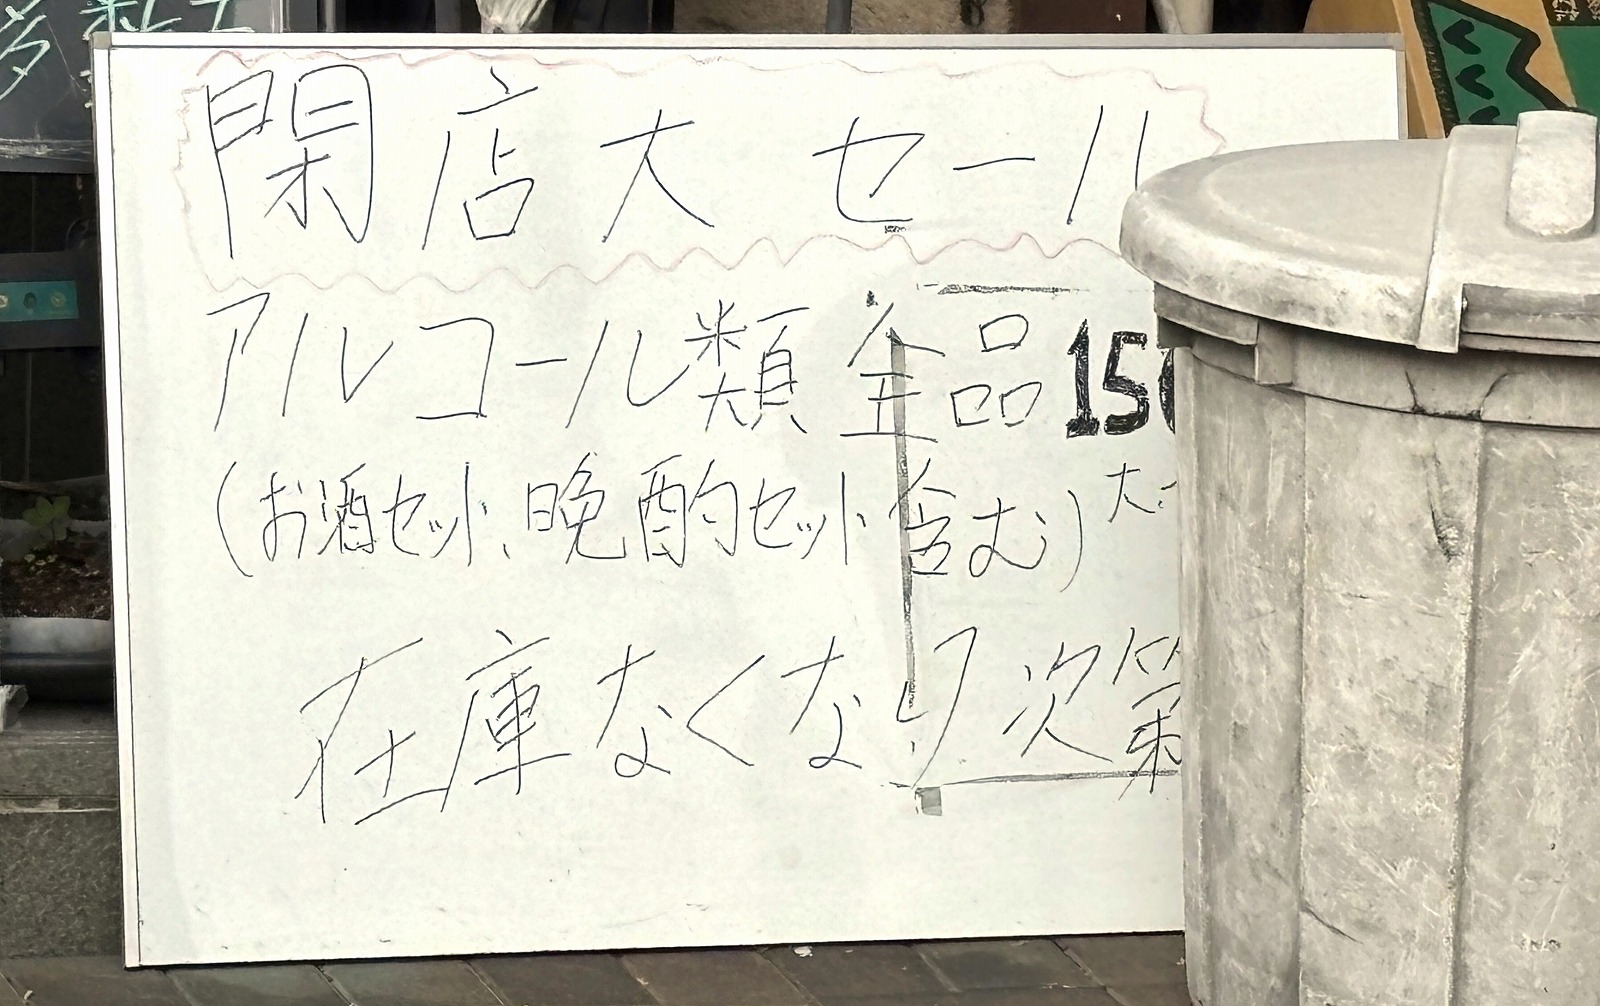 閉店大セール
アルコール類全品15
(お酒セット、晩酌セット含む)大
在庫なくなり次第